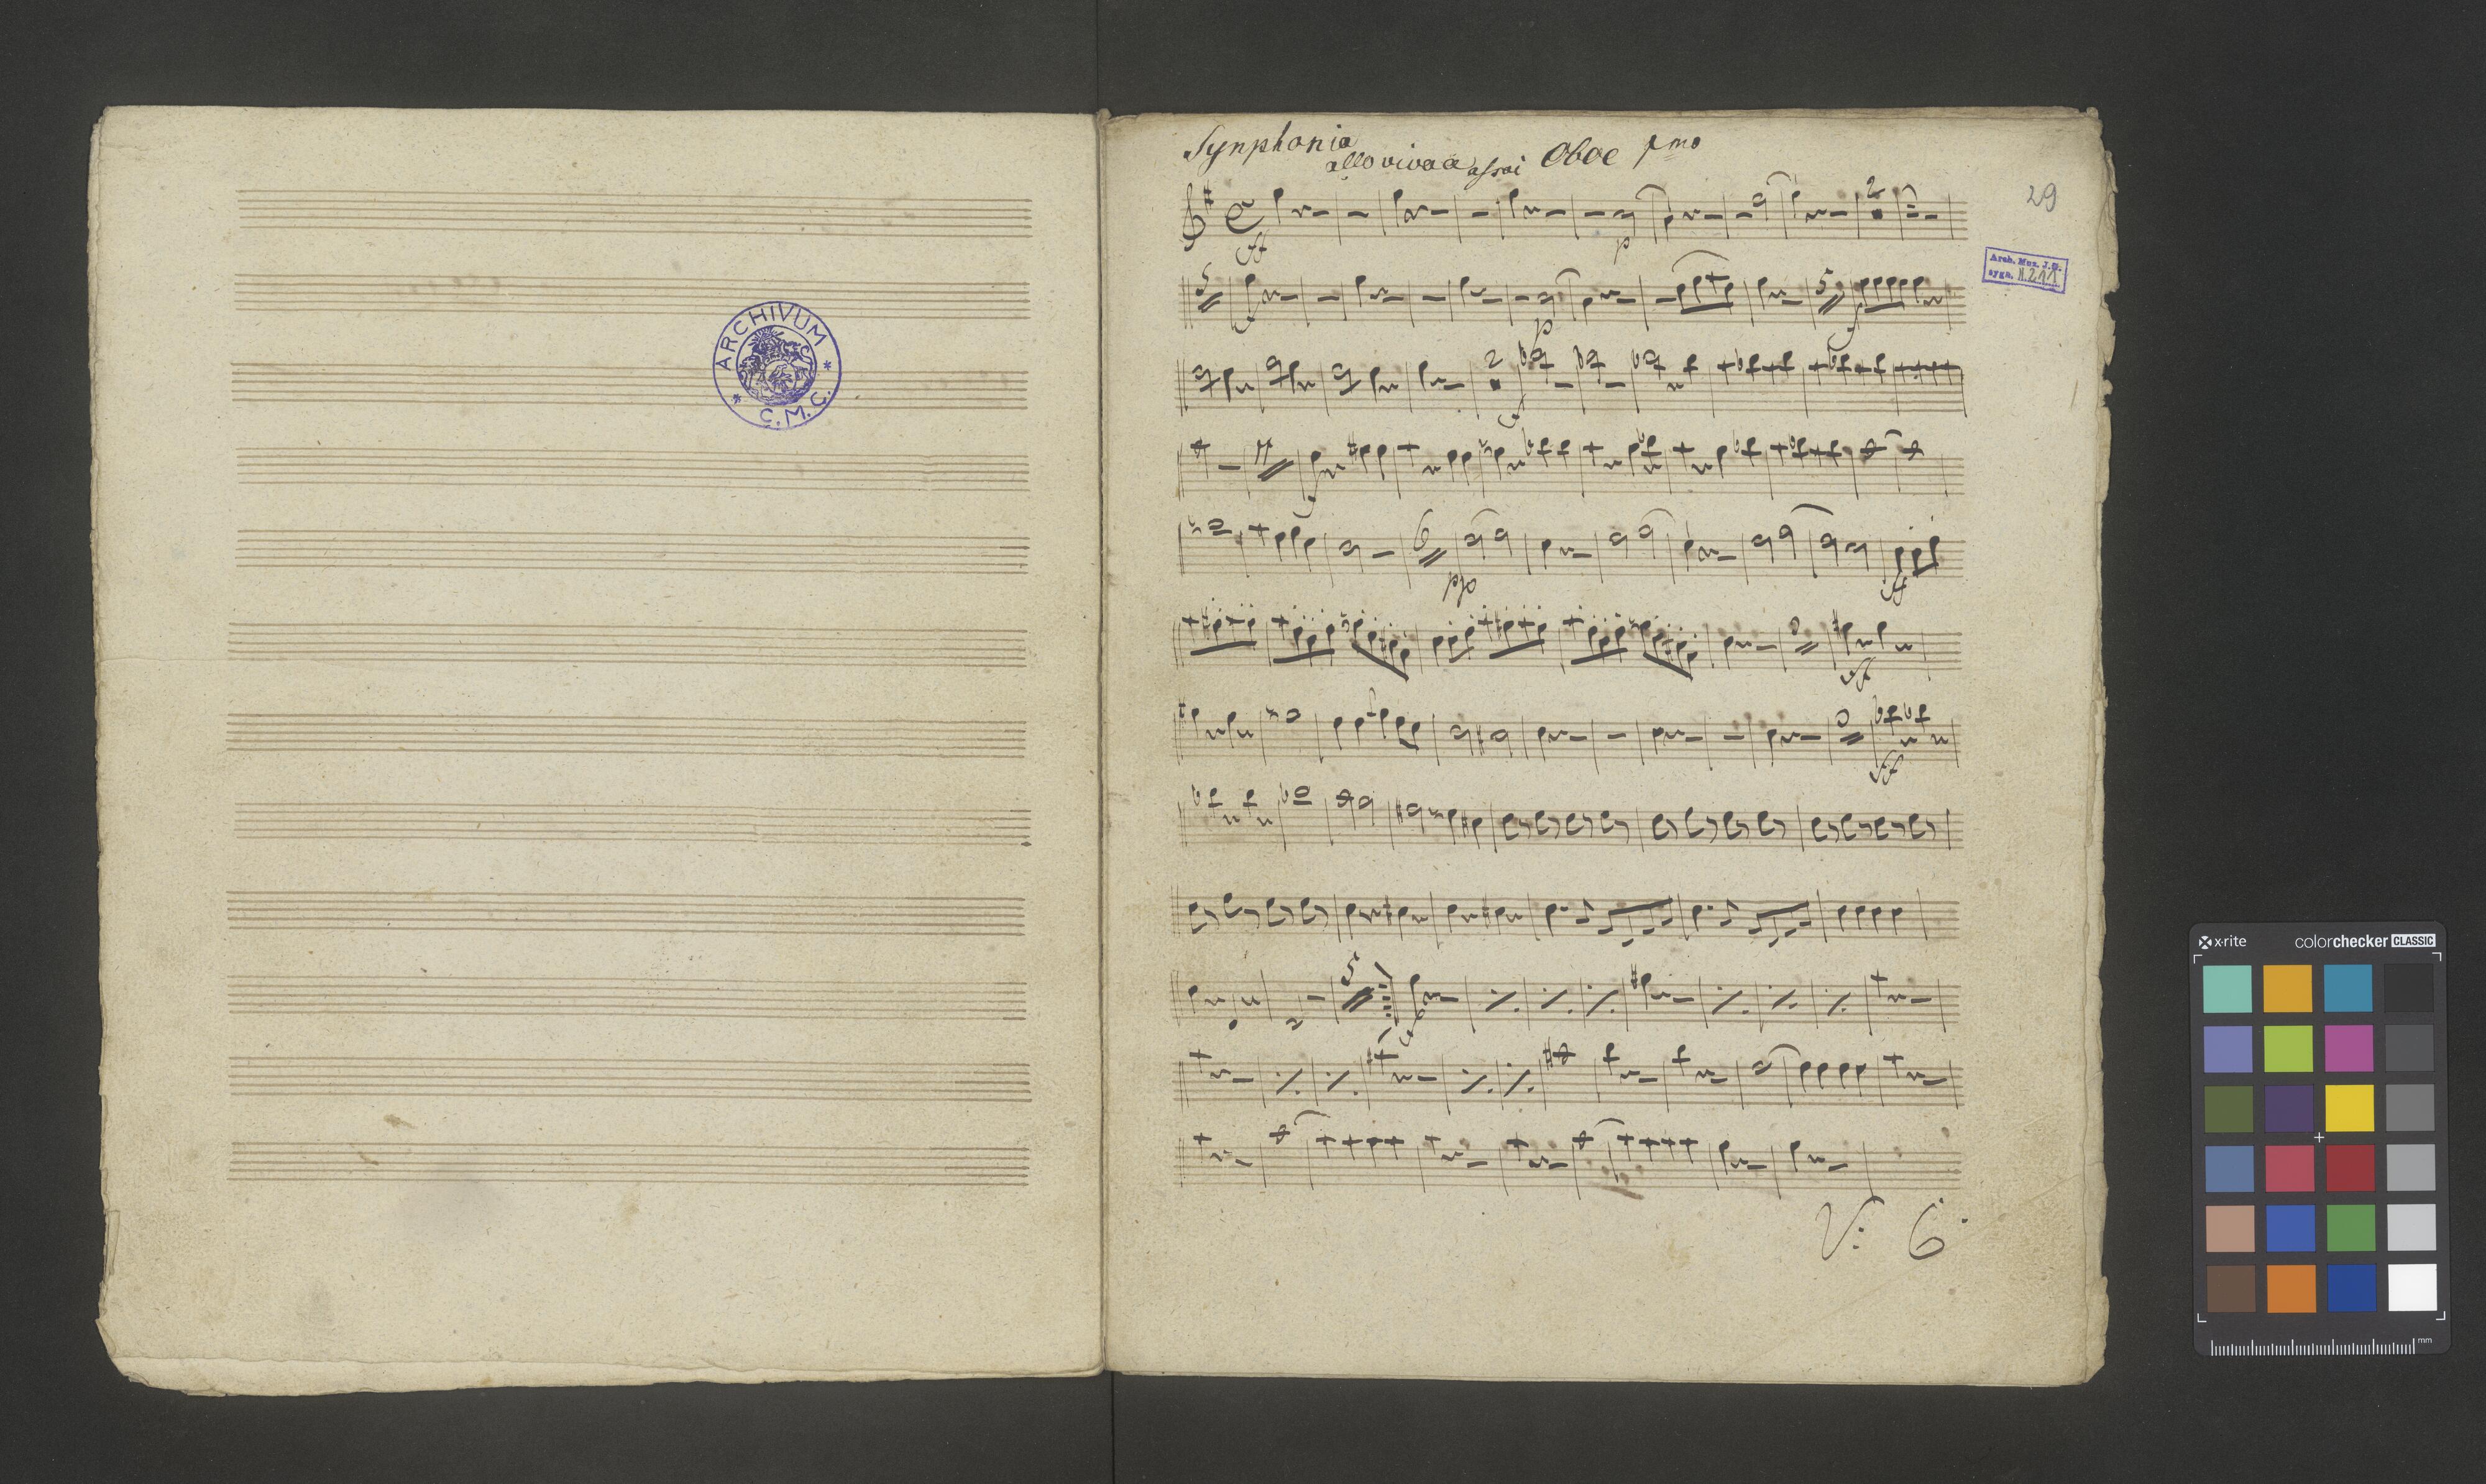 ARCHIVUM
* C.M.C. *
Synphonia
allo vivace assai Oboe pmo
29
Arch. Muz. J.G.
sygn. H.211
ff
2
p
5
f
p
5
f
2
f
f
6
pp
ff
ff
ff
5
V: 
x-rite
colorchecker CLASSIC
mm